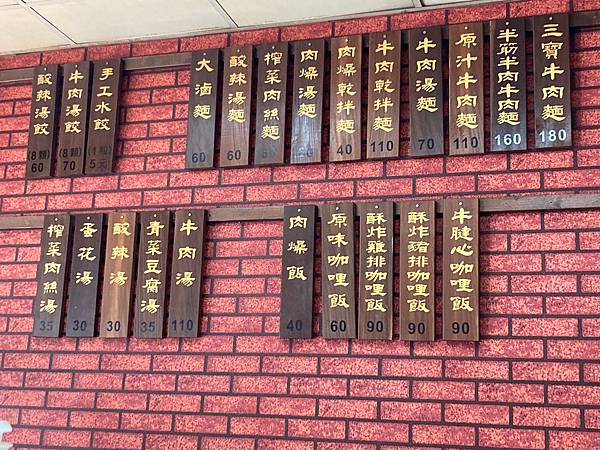 三寶牛肉麵
180
半筋半肉牛肉麵
160
原汁牛肉麵
110
牛肉湯麵
70
牛肉乾拌麵
110
肉燥乾拌麵
40
肉燥湯麵
榨菜肉絲麵
酸辣湯麵
60
大滷麵
60
手工水餃
5元
牛肉湯餃
(8顆)
70
酸辣湯餃
(8顆)
60
牛腱心咖哩飯
90
酥炸豬排咖哩飯
90
酥炸雞排咖哩飯
90
原味咖哩飯
60
肉燥飯
40
牛肉湯
110
青菜豆腐湯
35
酸辣湯
30
蛋花湯
30
榨菜肉絲湯
35